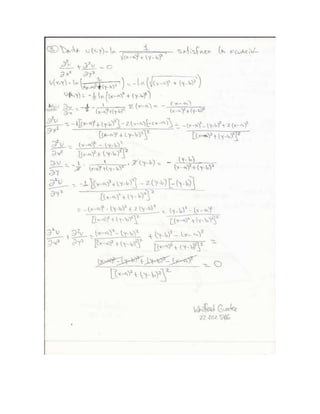 ③ Dada u(x,y)=ln 1/√((x-a)²+(y-b)²) satisface la ecuación
∂²u/∂x² + ∂²u/∂y² = 0
u(x,y)=ln(1/√((x-a)²+(y-b)²)) = -ln(√((x-a)²+(y-b)²))
u(x,y)=-½ ln[(x-a)²+(y-b)²]
∂u/∂x = -½ · 1/((x-a)²+(y-b)²) · 2(x-a) = -(x-a)/((x-a)²+(y-b)²)
∂²u/∂x² = -1[(x-a)²+(y-b)²]-2(x-a)[-(x-a)]/[(x-a)²+(y-b)²]² = -(x-a)²-(y-b)²+2(x-a)²/[(x-a)²+(y-b)²]²
∂²u/∂x² = (x-a)²-(y-b)²/[(x-a)²+(y-b)²]²
∂u/∂y = -½ · 1/((x-a)²+(y-b)²) · 2(y-b) = -(y-b)/((x-a)²+(y-b)²)
∂²u/∂y² = -1[(x-a)²+(y-b)²]-2(y-b)[-(y-b)]/[(x-a)²+(y-b)²]²
= -(x-a)²-(y-b)²+2(y-b)²/[(x-a)²+(y-b)²]² = (y-b)²-(x-a)²/[(x-a)²+(y-b)²]²
∂²u/∂x² + ∂²u/∂y² = (x-a)²-(y-b)²/[(x-a)²+(y-b)²]² + (y-b)²-(x-a)²/[(x-a)²+(y-b)²]² =
(x-a)²-(y-b)²+(y-b)²-(x-a)²/[(x-a)²+(y-b)²]² = 0